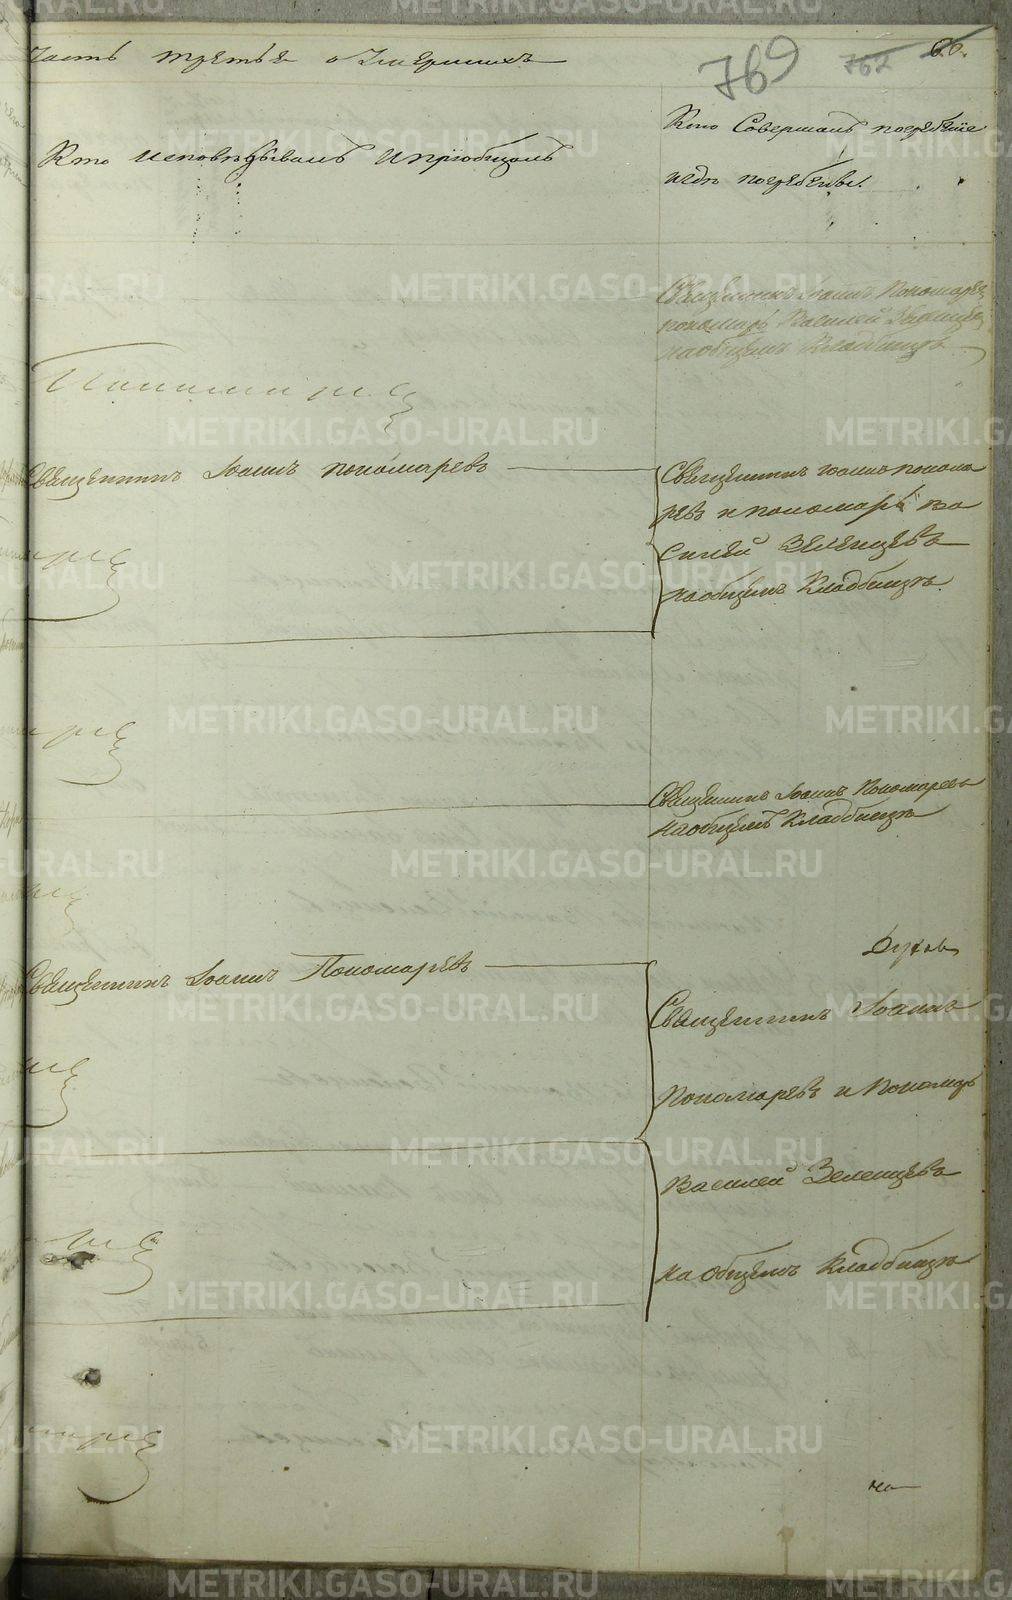 Часть третья о Умершихъ
769 762 60.
Кто исповѣдывалъ и пріобщалъ
Кто Совершалъ погребеніе
и гдѣ погребены.
Священникъ Іоаннъ Пономаревъ
пономарь Василей Зеленцевъ
на общемъ Кладбищѣ
Священникъ Іоаннъ пономаревъ
Священникъ Іоаннъ понома
ревъ и пономарь Ва
силей Зеленцевъ
на общемъ Кладбищѣ.
Священникъ Іоаннъ Пономаревъ
на общемъ Кладбищѣ
Духов
Священникъ Іоаннъ Пономаревъ
Священникъ Іоаннъ
Пономаревъ и Пономарь
Василей Зеленцевъ
на общемъ Кладбищѣ
на
METRIKI.GASO-URAL.RU